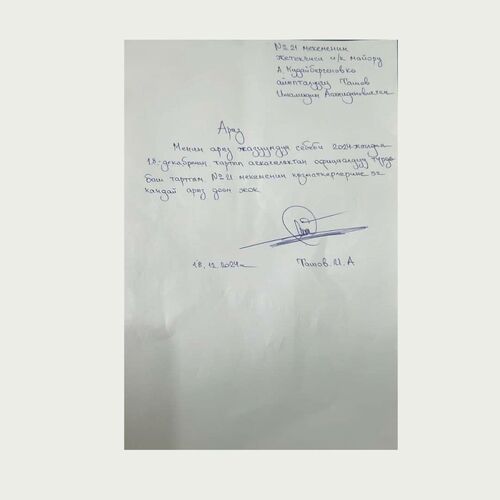 №21 мекеменин
жетекчиси и/к майору
А. Кудайбергеновко
айыпталуучу Ташов
Арыз
Менин арыз жазуумдун себеби 2024-жылдын
18-декабрынан тартып ачкачылыктан официалдуу түрдө
баш тарттам №21 мекеменин кызматкерлерине эч
кандай арыз доом жок
18.12.2024ж Ташов. И. А